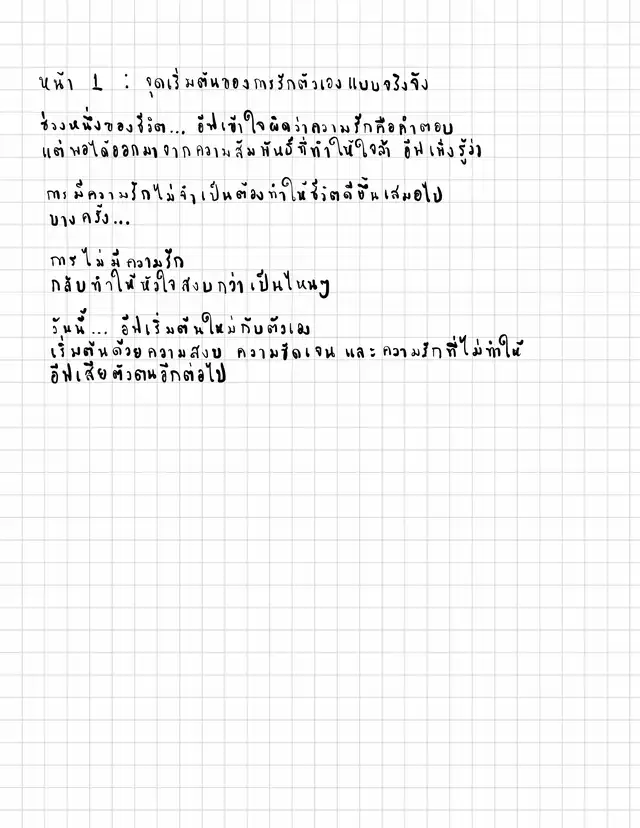 หน้า 1 : จุดเริ่มต้นของการรักตัวเองแบบจริงจัง
ช่วงหนึ่งของชีวิต... อีฟเข้าใจผิดว่าความรักคือคำตอบ
แต่พอได้ออกมาจากความสัมพันธ์ที่ทำให้ใจล้า อีฟเพิ่งรู้ว่า
การมีความรักไม่จำเป็นต้องทำให้ชีวิตดีขึ้นเสมอไป
บางครั้ง...
การไม่มีความรัก
กลับทำให้หัวใจสงบกว่าเป็นไหนๆ
วันนี้... อีฟเริ่มต้นใหม่กับตัวเอง
เริ่มต้นด้วยความสงบ ความชัดเจน และความรักที่ไม่ทำให้
อีฟเสียตัวตนอีกต่อไป